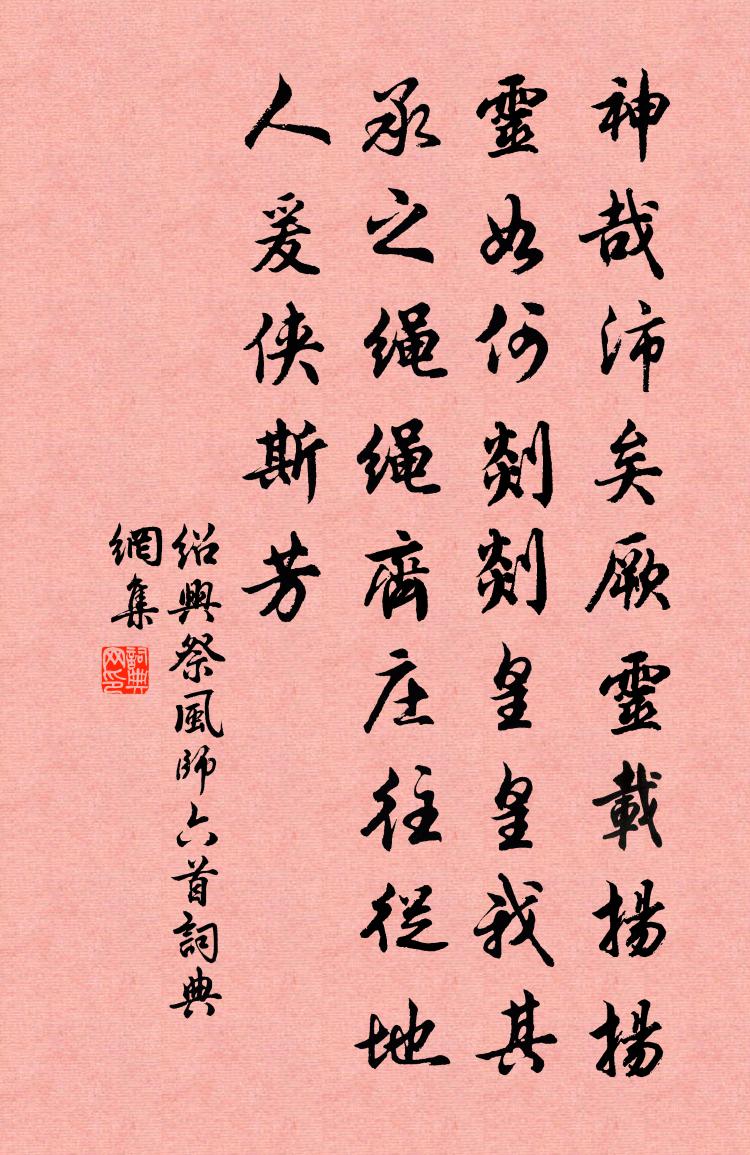 神哉沛矣厥靈載揚揚
靈如何剡剡皇皇我其
承之绳绳齊庄往從地
人爰侠斯芳
绍興祭風師六首詞典
網集
詞典网印